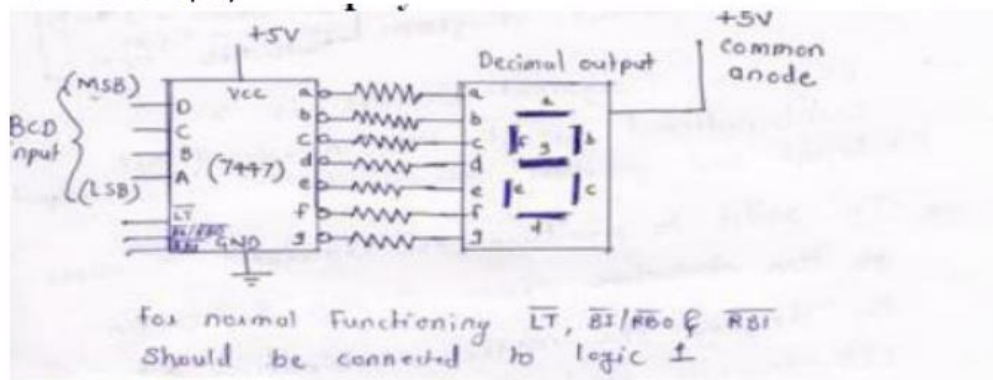 +5V
+5V
common
anode
Decimal output
(MSB)
BCD
input
(LSB)
Vcc
D
C
B
A
(7447)
LT
BI/RBO
RBI
GND
a
b
c
d
e
f
g
a
b
c
d
e
f
g
a
f
g
b
e
c
d
For normal Functioning LT, BI/RBO & RBI
Should be connected to logic 1